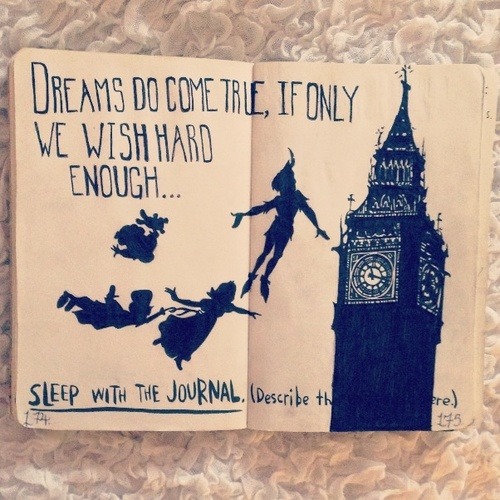 DREAMS DO COME TRUE, IF ONLY
WE WISH HARD
ENOUGH...
SLEEP WITH THE JOURNAL. (Describe th ere.)
174. 175